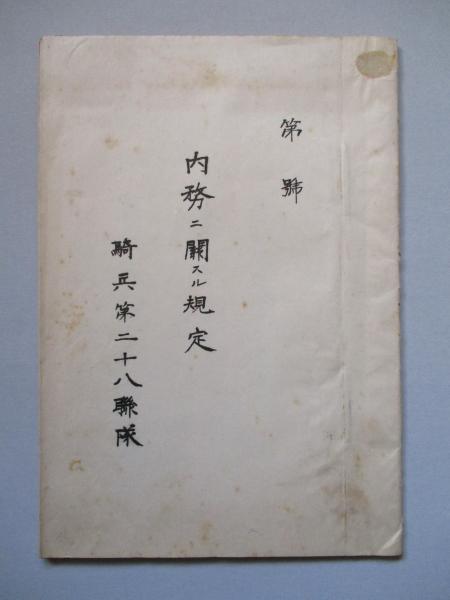 第　號
内務ニ關スル規定
騎兵第二十八聯隊